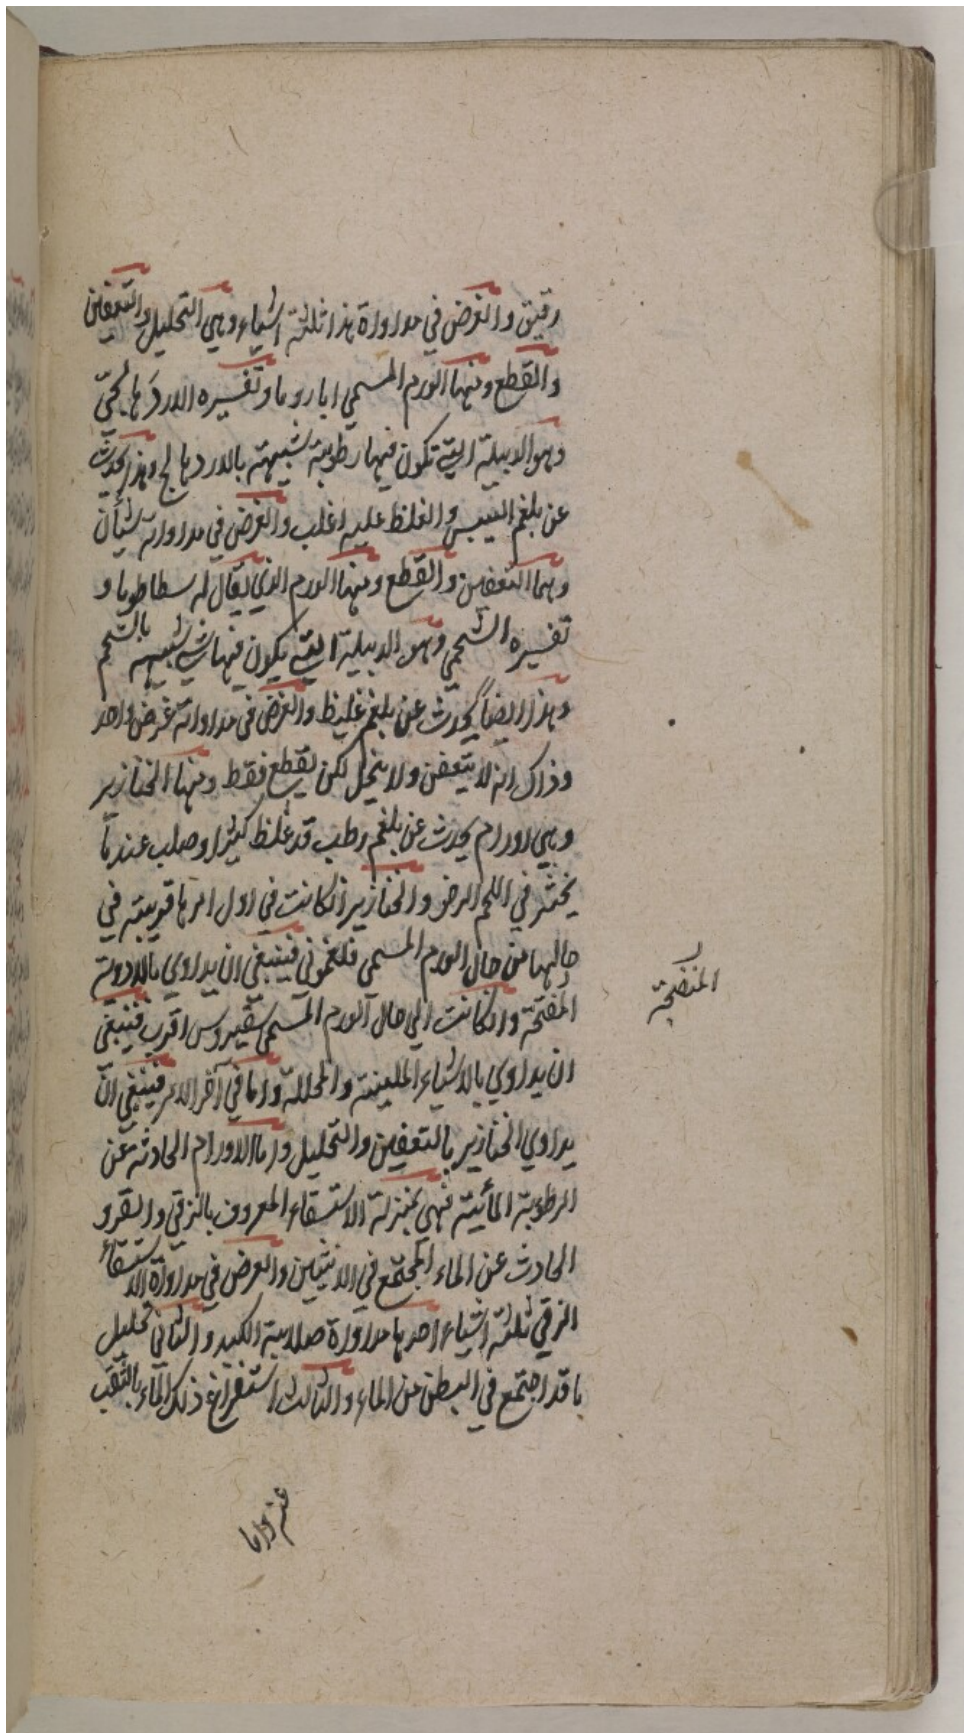 رقيق والغرض في مداواة هذا ثلثة اشياء وهي التحليل والتعفين
والقطع ومنها الورم المسمي اثاروما وتفسيره الاردهالجي
وهو الدبيلة التي تكون فيها رطوبة شبيهة بالاردهالج وهذا يحدث
عن بلغم اليبس والغلظ عليه اغلب والغرض في مداواته شيأن
وهما التعفين والقطع ومنها الورم الذي يقال له سطاطوما و
تفسيره الشحمي وهو الدبيلة التي يكون فيها شي شبيه بالشحم
وهذا ايضاً يحدث عن بلغم غليظ والغرض في مداواته غرض واحد
وذاك انه لا يتعفن ولا ينحل لكن يقطع فقط ومنها الخنازير
وهي اورام يحدث عن بلغم رطب قد غلظ كثيرا وصلب عندما
يخثر في اللحم الرخو والخنازير اذا كانت في اول امرها قريبة في
حالها من حال الورم المسمي فلغموني فينبغي ان يداوي بالادوية
المفتحة وان كانت الي حال الورم المسمي سقيروس اقرب فينبغي
المنضجة
ان يداوي بالاشياء الملينة والمحللة واما في آخر الامر فينبغي ان
يداوي الخنازير بالتعفين والتحليل واما الاورام الحادثة عن
الرطوبة المائية فهي بمنزلة الاستسقاء المعروف بالزقي والقرو
الحادث عن الماء المجتمع في الانثيين والغرض في مداواة الاستسقاء
الزقي ثلثة اشياء احدها مداواة صلابة الكبد والثاني تحليل
ما قد اجتمع في البطن من الماء والثالث استفراغ ذلك الماء بالثقب
عنه واما